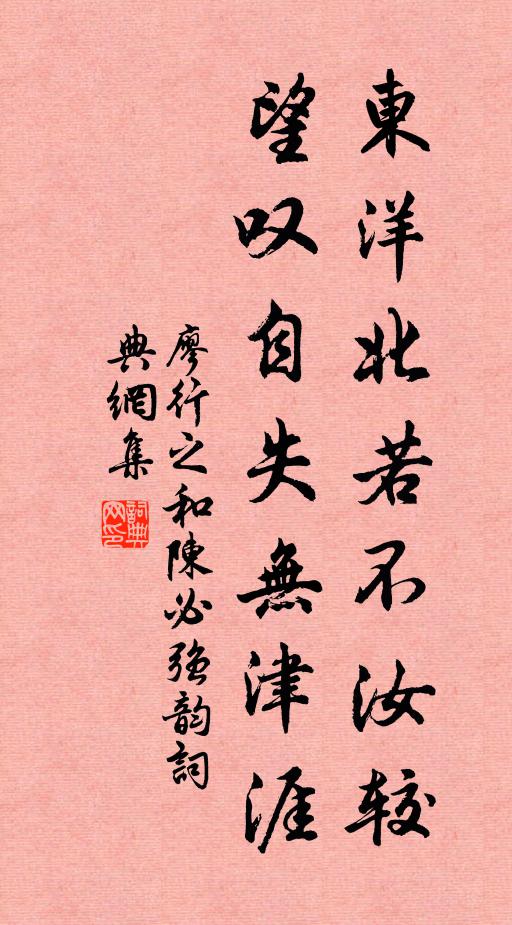 東洋北若不汝较
望叹自失無津涯
廖行之和陳必强韵詞
典網集
詞典網印